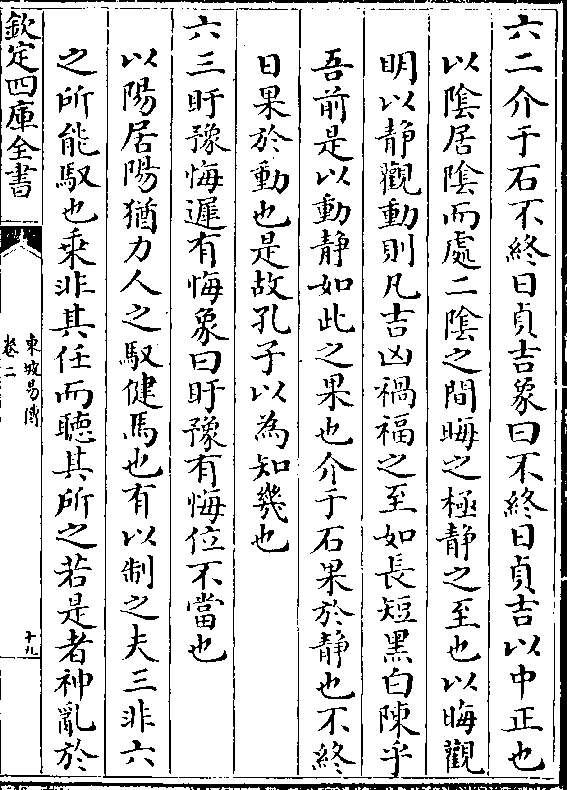 六二介于石不終日貞吉象曰不終日貞吉以中正也
以陰居陰而處二陰之間晦之極静之至也以晦觀
明以静觀動則凡吉凶禍福之至如長短黑白陳乎
吾前是以動静如此之果也介于石果於静也不終
日果於動也是故孔子以為知幾也
六三盱豫悔遲有悔象曰盱豫有悔位不當也
以陽居陽猶力人之馭健馬也有以制之夫三非六
之所能馭也乗非其任而聽其所之若是者神亂於
欽定四庫全書
東坡易傳
卷二
十九